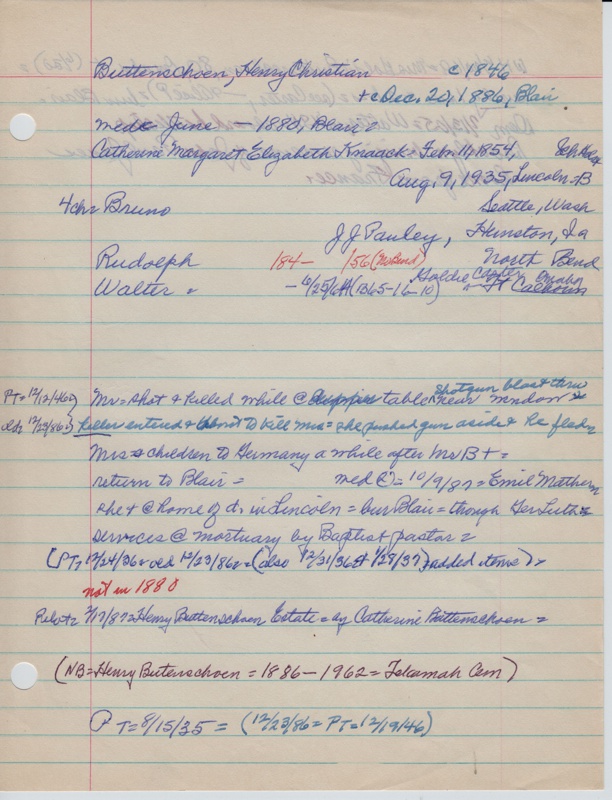 Buttenschoen, Henry Christian c 1846
+ c Dec. 20, 1886, Blair
med c June — 1880, Blair =
Catherine Margaret Elizabeth Knaack = Feb. 11, 1854,
Aug. 9, 1935, Lincoln = B
4 ch = Bruno Seattle, Wash
J J Pauley, Heinston, Ia
Rudolph 184— 1/56 (No Bend) North Bend
Walter = — 6/25/64 (1365-16-10) Goldie Carter Omaha
Ft Calhoun
PT = 12/12/46 Mr = shot & killed while @ supper table near window &
shotgun blast thru
old 12/23/86 killer entered & tried to kill Mrs = she pushed gun aside & he fled
Mrs & children to Germany a while after Mr B + =
return to Blair = med ② = 10/9/87 = Emil Mathern
she + @ home of d. in Lincoln = bur Blair = though Ger Luth =
services @ mortuary by Baptist pastor =
(PT, 12/24/36 = old 12/23/86 = (also 12/31/36 & 1/28/37) added items) =
not in 1880
Pilot = 2/17/87 = Henry Buttenschoen Estate = by Catherine Buttenschoen =
(NB = Henry Butenschoen = 1886 — 1962 = Tekamah Cem)
PT = 8/15/35 = (12/23/86 = PT = 12/19/46)